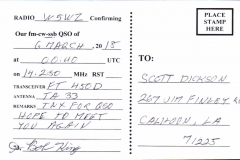 RADIO W5WZ Confirming
Our fm-cw-ssb QSO of
6 MARCH, 2018
at 00:40 UTC
on 14.250 MHz RST
TRANSCEIVER FT 450D
ANTENNA TA 33
REMARKS TNX FOR QSO
HOPE TO MEET
YOU AGAIN
Bob
PLACE
STAMP
HERE
TO:
SCOTT DICKSON
267 JIM FINLEY RD
CALHOUN, LA
71225